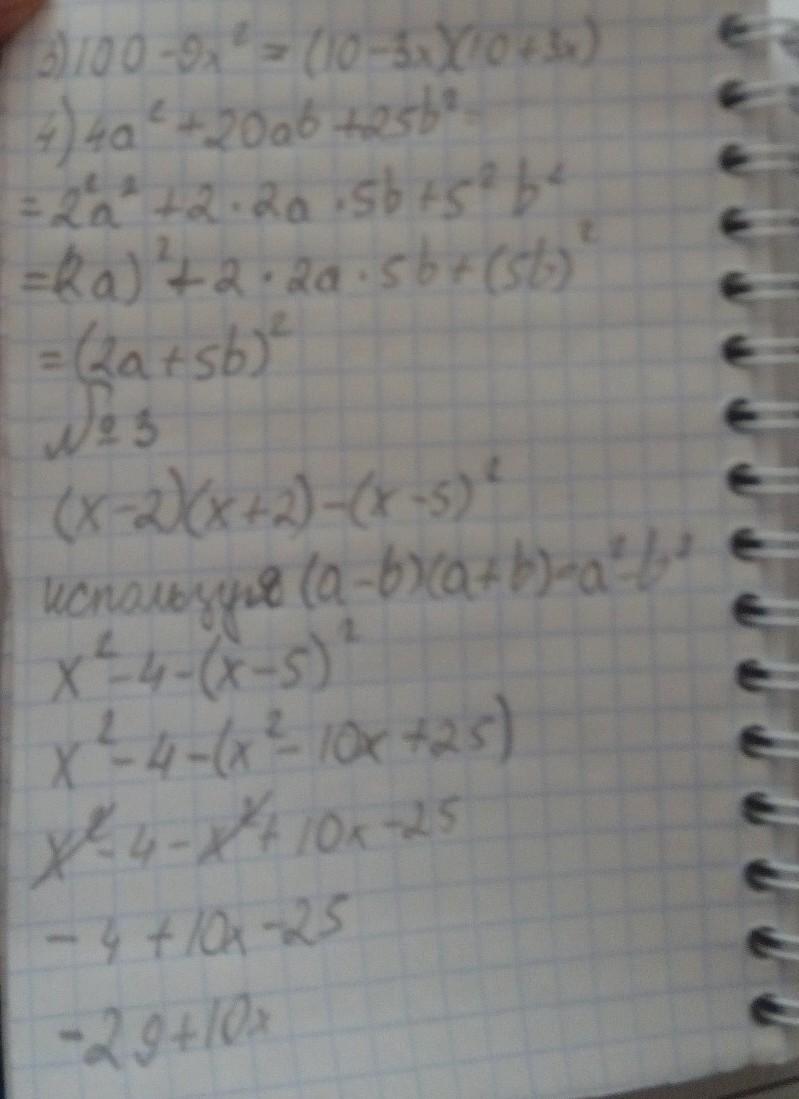 3) 100 - 9x² = (10 - 3x)(10 + 3x)
4) 4a² + 20ab + 25b² =
= 2²a² + 2 · 2a · 5b + 5²b²
= (2a)² + 2 · 2a · 5b + (5b)²
= (2a + 5b)²
№ 3
(x - 2)(x + 2) - (x - 5)²
используя (a - b)(a + b) = a² - b²
x² - 4 - (x - 5)²
x² - 4 - (x² - 10x + 25)
x² - 4 - x² + 10x - 25
- 4 + 10x - 25
- 29 + 10x